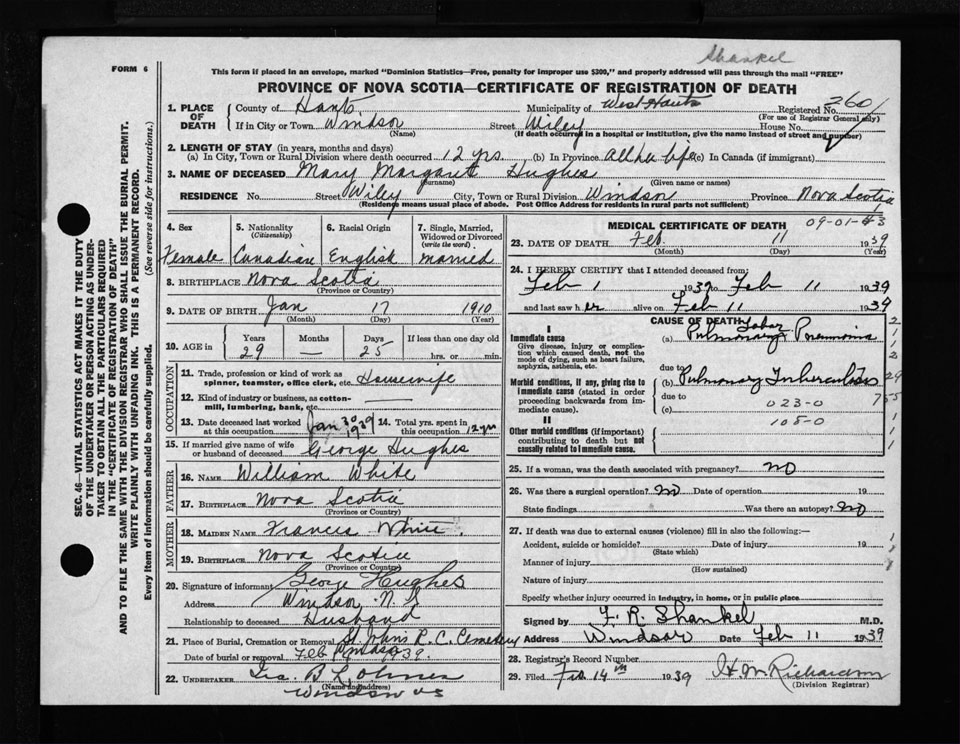 Shankel
FORM 6
This form if placed in an envelope, marked "Dominion Statistics—Free, penalty for improper use $300," and properly addressed will pass through the mail "FREE"
PROVINCE OF NOVA SCOTIA—CERTIFICATE OF REGISTRATION OF DEATH
SEC. 46—VITAL STATISTICS ACT MAKES IT THE DUTY
OF THE UNDERTAKER OR PERSON ACTING AS UNDER-
TAKER TO OBTAIN ALL THE PARTICULARS REQUIRED
IN THE "CERTIFICATE OF REGISTRATION OF DEATH"
AND TO FILE THE SAME WITH THE DIVISION REGISTRAR WHO SHALL ISSUE THE BURIAL PERMIT.
WRITE PLAINLY WITH UNFADING INK. THIS IS A PERMANENT RECORD.
Every item of information should be carefully supplied. (See reverse side for instructions.)
1. PLACE OF DEATH
County of Hants Municipality of West Hants Registered No. 260
(For use of Registrar General only)
If in City or Town Windsor Street Wiley House No.
(Name) (If death occurred in a hospital or institution, give the name instead of street and number)
2. LENGTH OF STAY (in years, months and days)
(a) In City, Town or Rural Division where death occurred 12 yrs. (b) In Province All her life (c) In Canada (if immigrant)
3. NAME OF DECEASED Mary Margaret Hughes
(Surname) (Given name or names)
RESIDENCE No. Street Wiley City, Town or Rural Division Windsor Province Nova Scotia
(Residence means usual place of abode. Post Office Address for residents in rural parts not sufficient)
4. Sex
Female
5. Nationality
(Citizenship)
Canadian
6. Racial Origin
English
7. Single, Married, Widowed or Divorced
(write the word)
Married
8. BIRTHPLACE Nova Scotia
(Province or Country)
9. DATE OF BIRTH Jan 17 1910
(Month) (Day) (Year)
10. AGE in
Years Months Days If less than one day old
29 — 25 hrs. or min.
OCCUPATION
11. Trade, profession or kind of work as
spinner, teamster, office clerk, etc. Housewife
12. Kind of industry or business, as cotton-
mill, lumbering, bank, etc. —
13. Date deceased last worked
at this occupation Jan 30 1939
14. Total yrs. spent in
this occupation 12 yrs
15. If married give name of wife
or husband of deceased George Hughes
FATHER
16. NAME William White
17. BIRTHPLACE Nova Scotia
(Province or Country)
MOTHER
18. MAIDEN NAME Francis White.
19. BIRTHPLACE Nova Scotia
(Province or Country)
20. Signature of informant George Hughes
Address Windsor N.S
Relationship to deceased Husband
21. Place of Burial, Cremation or Removal St John's R.C. Cemetery
Windsor
Date of burial or removal Feb 1939.
22. UNDERTAKER
(Name and address)
Windsor NS
MEDICAL CERTIFICATE OF DEATH
09-01-43
23. DATE OF DEATH Feb. 11 1939
(Month) (Day) (Year)
24. I HEREBY CERTIFY that I attended deceased from:
Feb 1 1939 to Feb 11 1939
and last saw her alive on Feb 11 1939
CAUSE OF DEATH
I
Immediate cause
Give disease, injury or complica-
tion which caused death, not the
mode of dying, such as heart failure,
asphyxia, asthenia, etc.
Lobar
(a) Pulmonary Pneumonia
due to
Morbid conditions, if any, giving rise to
immediate cause (stated in order
proceeding backwards from im-
mediate cause).
(b) Pulmonary Tuberculosis
due to
(c) 023-0
105-0
II
Other morbid conditions (if important)
contributing to death but not
causally related to immediate cause.
25. If a woman, was the death associated with pregnancy? No
26. Was there a surgical operation? No Date of operation 19
State findings Was there an autopsy? No
27. If death was due to external causes (violence) fill in also the following:—
Accident, suicide or homicide? Date of injury 19
(State which)
Manner of injury
(How sustained)
Nature of injury
Specify whether injury occurred in industry, in home, or in public place
Signed by F. R. Shankel M.D.
Address Windsor Date Feb 11 1939
28. Registrar's Record Number
29. Filed Feb 14th 1939 H.M. Richardson
(Division Registrar)